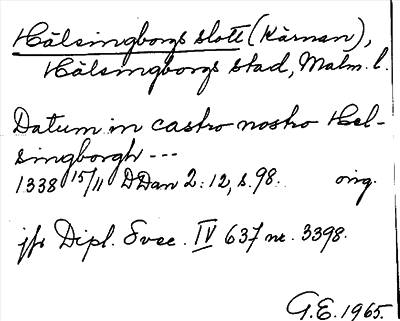 Hälsingborgs slott (Kärnan),
Hälsingborgs stad, Malm. l.
Datum in castro nostro Hel-
singborgh ---
1338 15/11 DDan 2:12, s. 98. orig.
jfr Dipl. Svec. IV 637 nr. 3398.
G.E. 1965.